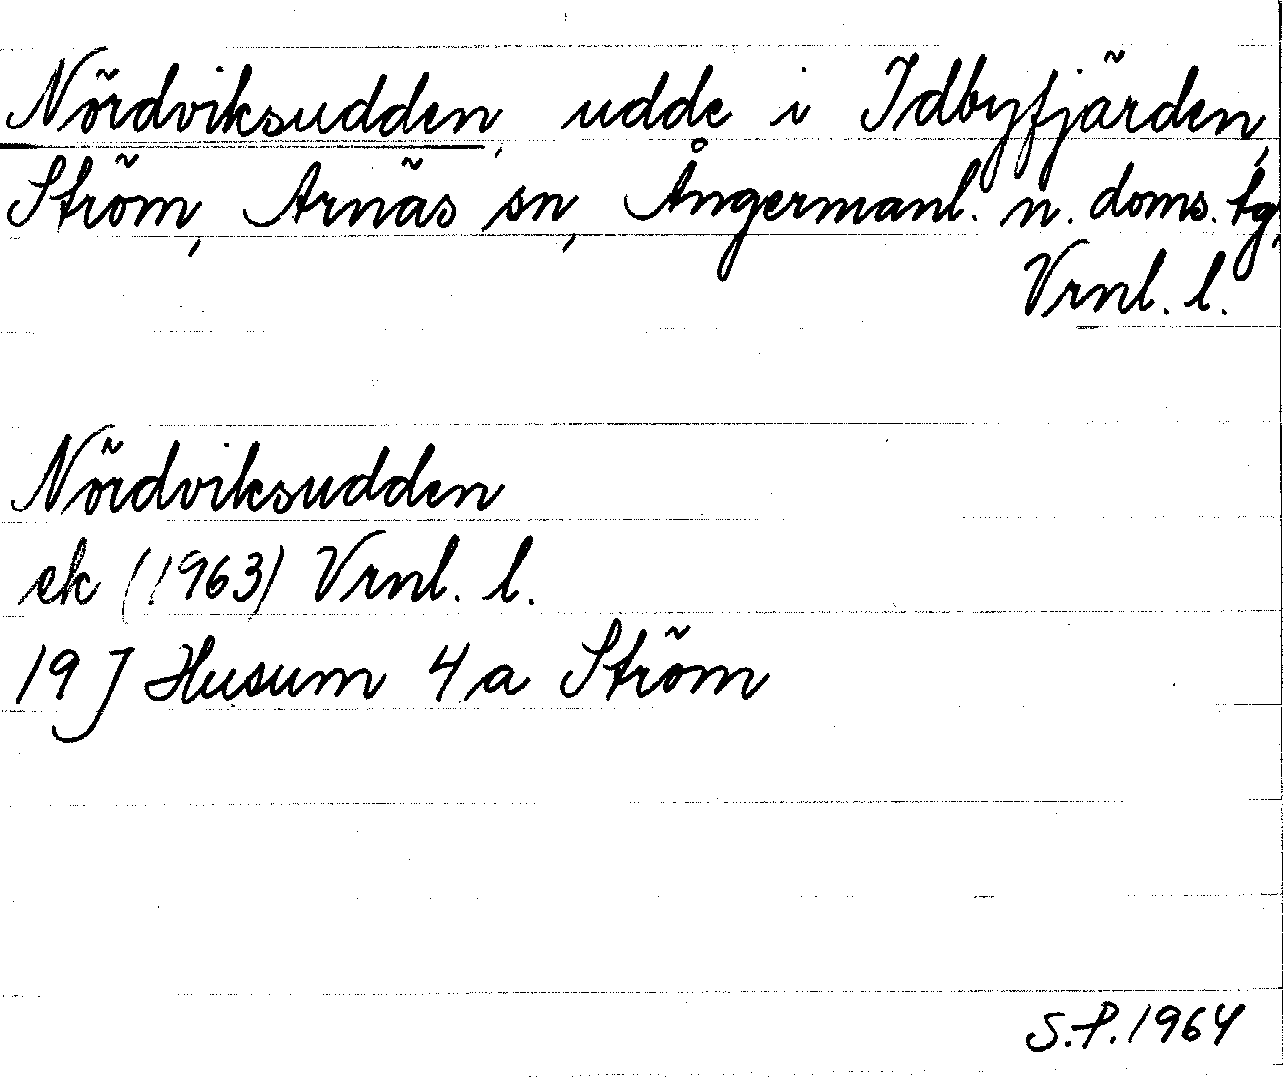 Nördviksudden, udde i Idbyfjärden,
Ström, Arnäs sn, Ångermanl. n. doms. tg,
Vrnl. l.
Nördviksudden
ek (1963) Vrnl. l.
19 J Husum 4 a Ström
S.P. 1964